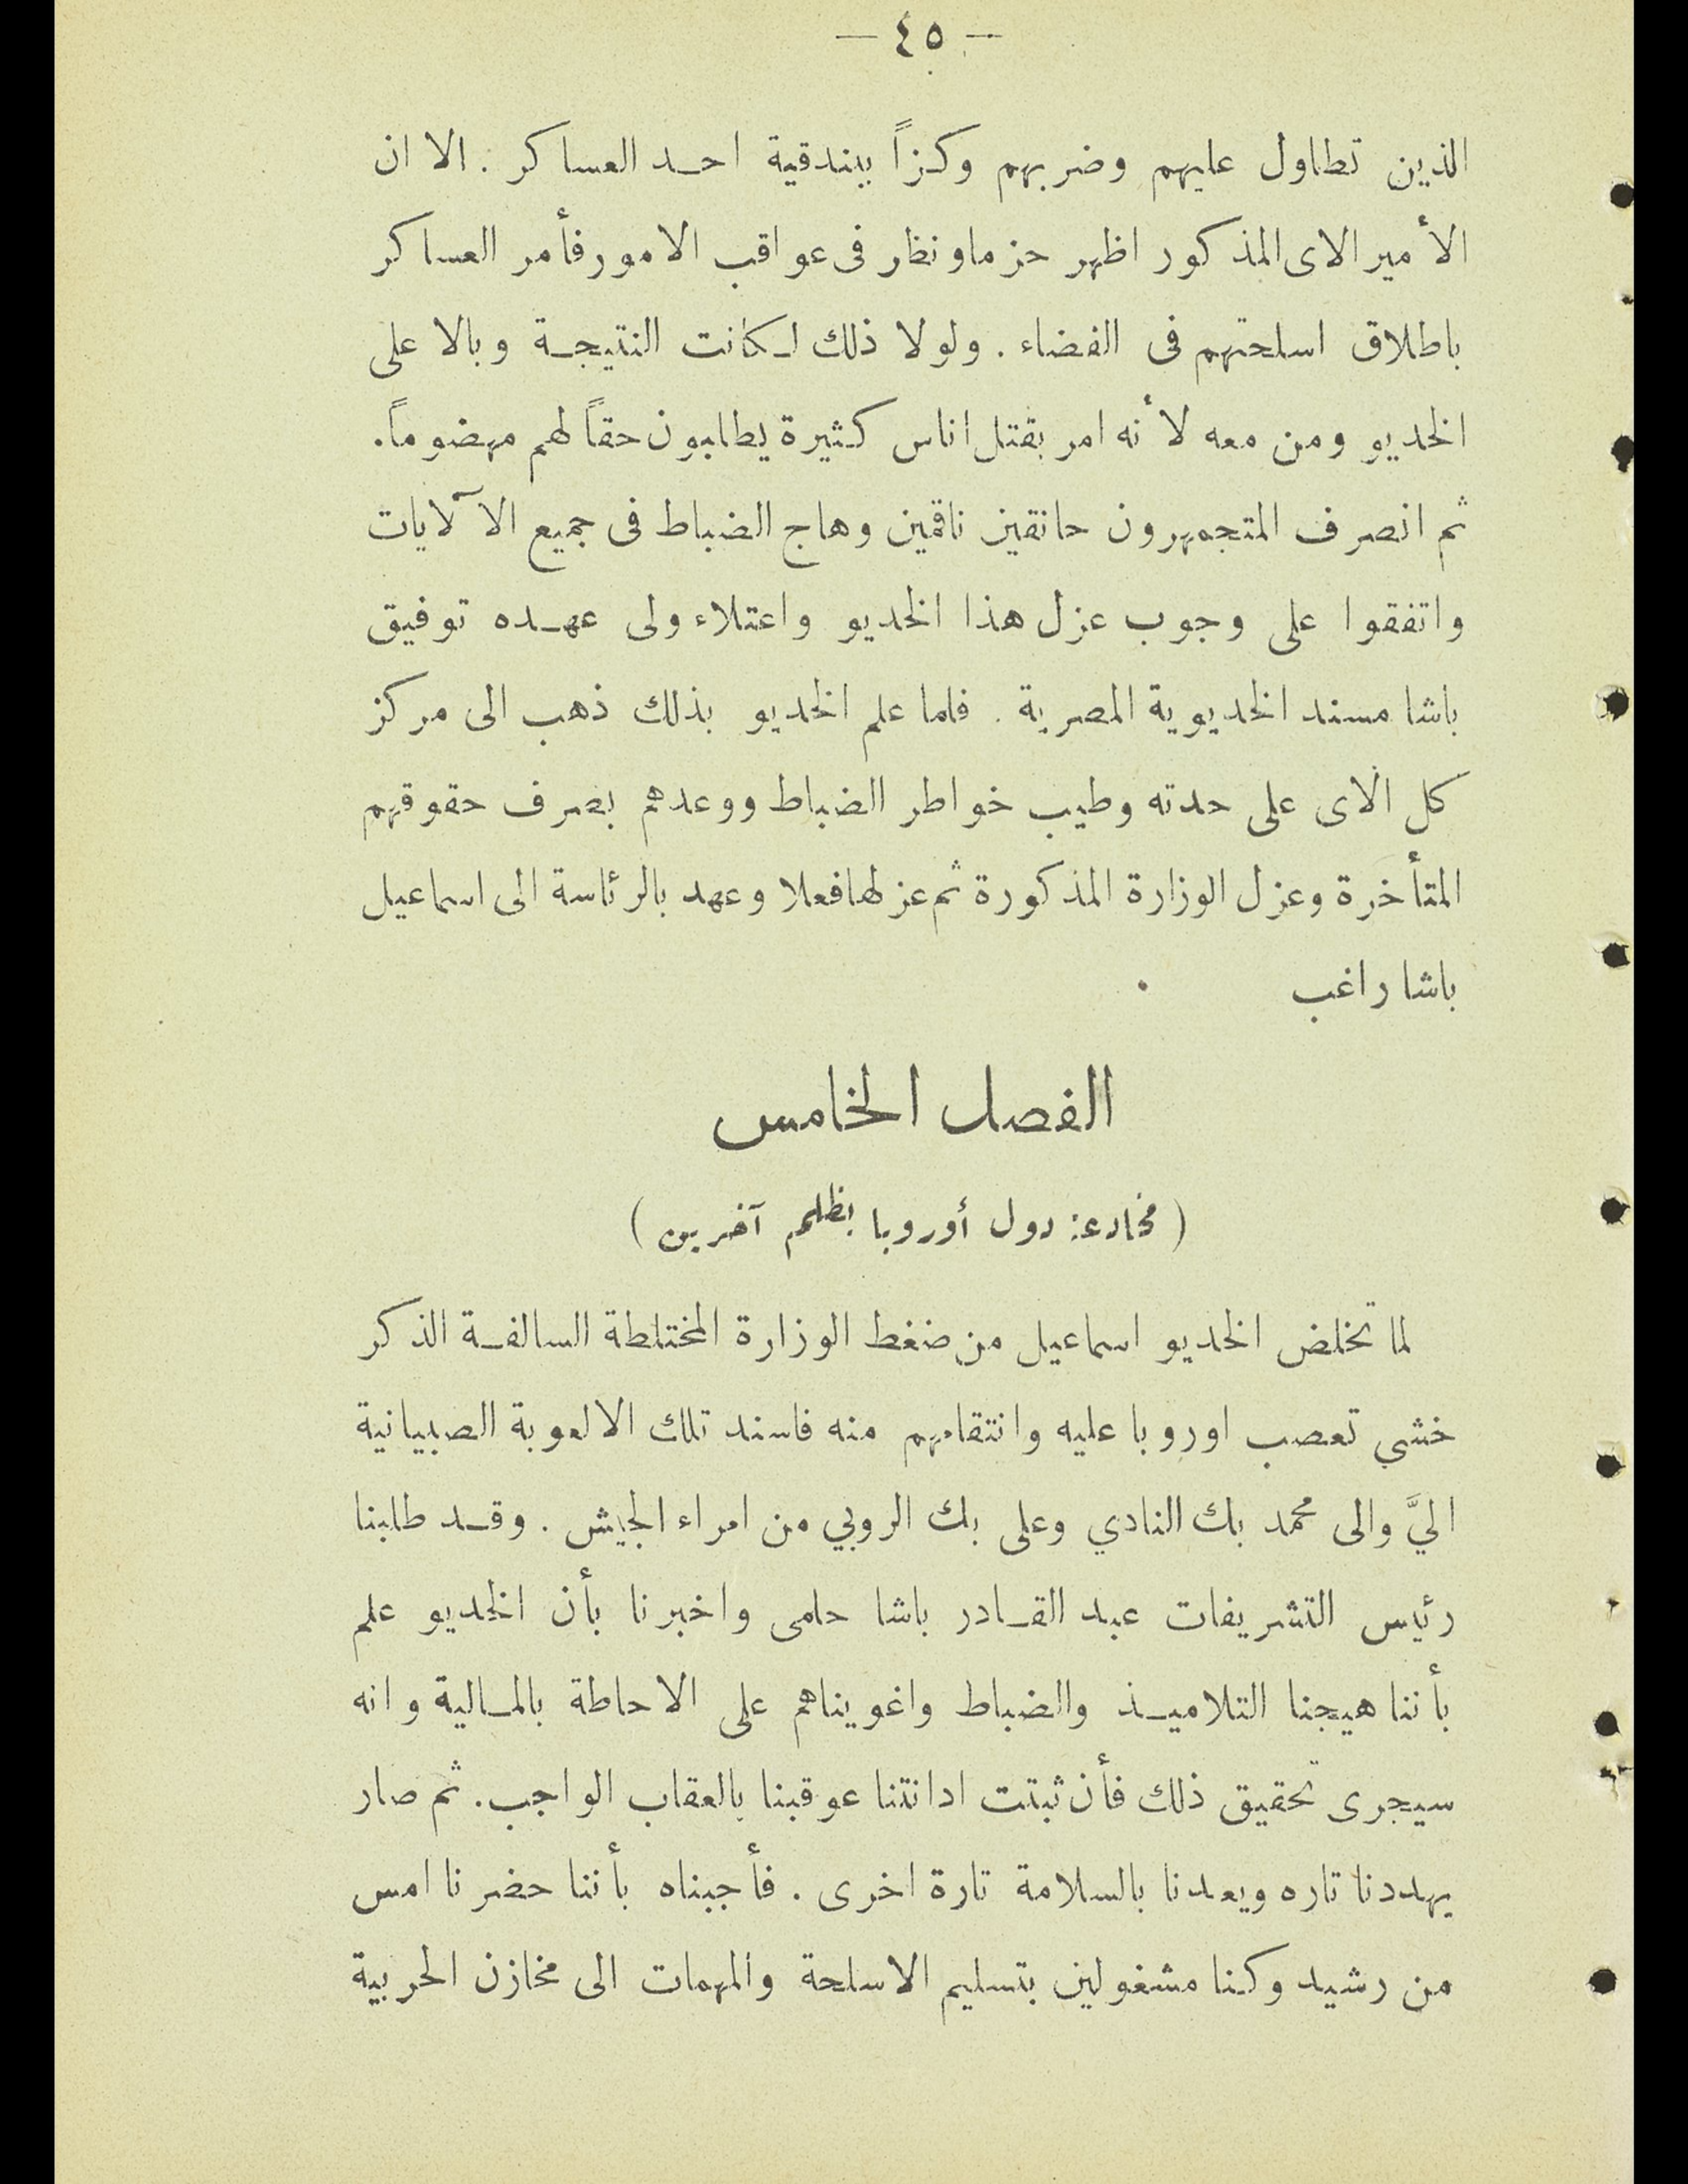 — ٤٥ —
الذين تطاول عليهم وضربهم وكزاً ببندقية احد العساكر . الا ان
الأميرالاى المذكور اظهر حزما ونظار فى عواقب الامور فأمر العساكر
باطلاق اسلحتهم فى الفضاء . ولولا ذلك لكانت النتيجة وبالا على
الخديو ومن معه لأنه امر بقتل اناس كثيرة يطلبون حقاً لهم مهضوماً.
ثم انصرف المتجمهرون حانقين ناقمين وهاج الضباط فى جميع الآلايات
واتفقوا على وجوب عزل هذا الخديو واعتلاء ولى عهده توفيق
باشا مسند الخديوية المصرية . فلما علم الخديو بذلك ذهب الى مركز
كل الاى على حدته وطيب خواطر الضباط ووعدهم بصرف حقوقهم
المتأخرة وعزل الوزارة المذكورة ثم عزلها فعلا وعهد بالرئاسة الى اسماعيل
باشا راغب
الفصل الخامس
( مخادعة دول أوروبا بظلم آخرين )
لما تخلص الخديو اسماعيل من ضغط الوزارة المختلطة السالفة الذكر
خشي تعصب اوروبا عليه وانتقامهم منه فاسند تلك الالعوبة الصبيانية
اليَّ والى محمد بك النادي وعلى بك الروبي من امراء الجيش . وقد طلبنا
رئيس التشريفات عبد القادر باشا حلمى واخبرنا بأن الخديو علم
بأننا هيجنا التلاميذ والضباط واغويناهم على الاحاطة بالمالية وانه
سيجرى تحقيق ذلك فأن ثبتت ادانتنا عوقبنا بالعقاب الواجب. ثم صار
يهددنا تاره ويعدنا بالسلامة تارة اخرى . فأجبناه بأننا حضرنا امس
من رشيد وكنا مشغولين بتسليم الاسلحة والمهمات الى مخازن الحربية